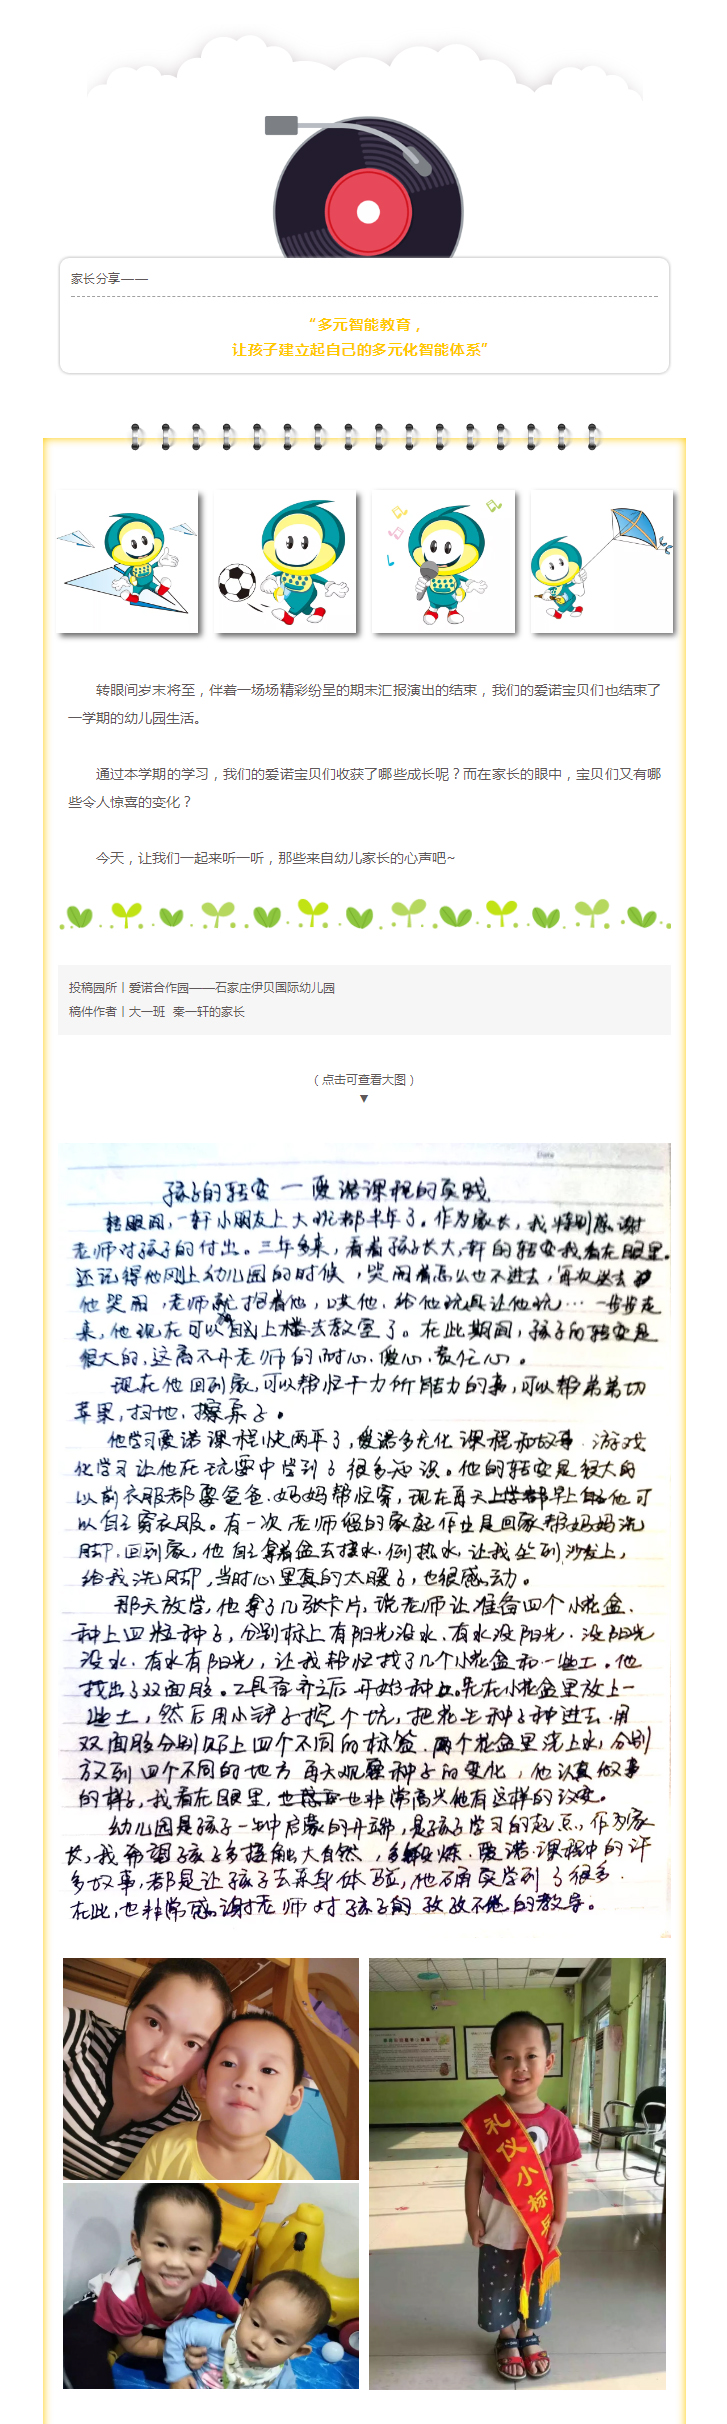 家长分享——
“多元智能教育，
让孩子建立起自己的多元化智能体系”
转眼间岁末将至，伴着一场场精彩纷呈的期末汇报演出的结束，我们的爱诺宝贝们也结束了
一学期的幼儿园生活。
通过本学期的学习，我们的爱诺宝贝们收获了哪些成长呢？而在家长的眼中，宝贝们又有哪
些令人惊喜的变化？
今天，让我们一起来听一听，那些来自幼儿家长的心声吧~
投稿园所丨爱诺合作园——石家庄伊贝国际幼儿园
稿件作者丨大一班 秦一轩的家长
（点击可查看大图）
▼
Date
孩子的转变一爱诺课程的实践
转眼间，一轩小朋友上大班都半年了。作为家长，我特别感谢
老师对孩子的付出。三年多来，看着孩子长大，轩的转变我看在眼里。
还记得他刚上幼儿园的时候，哭闹着怎么也不进去，再次送去
他哭闹，老师就抱着他，哄他，给他玩具让他玩…一步步走
来，他现在可以自己上楼去教室了。在此期间，孩子的转变是
很大的，这离不开老师的耐心、爱心、责任心。
现在他回到家，可以帮忙干力所能力的事，可以帮弟弟切
苹果，扫地，擦桌子。
他学习爱诺课程快两年了，爱诺多元化课程和故事、游戏
化学习让他在玩耍中学到了很多知识。他的转变是很大的
以前衣服都要爸爸、妈妈帮忙穿，现在每天早上他可
以自己穿衣服。有一次老师留的家庭作业是回家帮妈妈洗
脚，回到家，他自己拿着盆去接水，倒热水，让我坐到沙发上，
给我洗脚，当时心里真的太暖了，也很感动。
那天放学，他拿了几张卡片，说老师让准备四个小花盆、
种上四粒种子，分别标上有阳光没水、有水没阳光、没阳光
没水、有水有阳光，让我帮忙找了几个小花盆和一些土。他
找出了双面胶。工具备齐之后开始种上。先在小花盆里放上一
些土，然后用小铲子挖个坑，把花生种子种进去，用
双面胶分别贴上四个不同的标签，两个花盆里浇上水，分别
放到四个不同的地方，每天观察种子的变化，他认真做事
的样子，我看在眼里，也非常高兴他有这样的改变。
幼儿园是孩子一生中启蒙的开端，是孩子学习的起点，作为家
长，我希望孩子多接触大自然，多锻炼。爱诺课程中的许
多故事，都是让孩子去亲身体验，他确实学到了很多。
在此，也非常感谢老师对孩子的孜孜不倦的教导。
礼仪小标兵